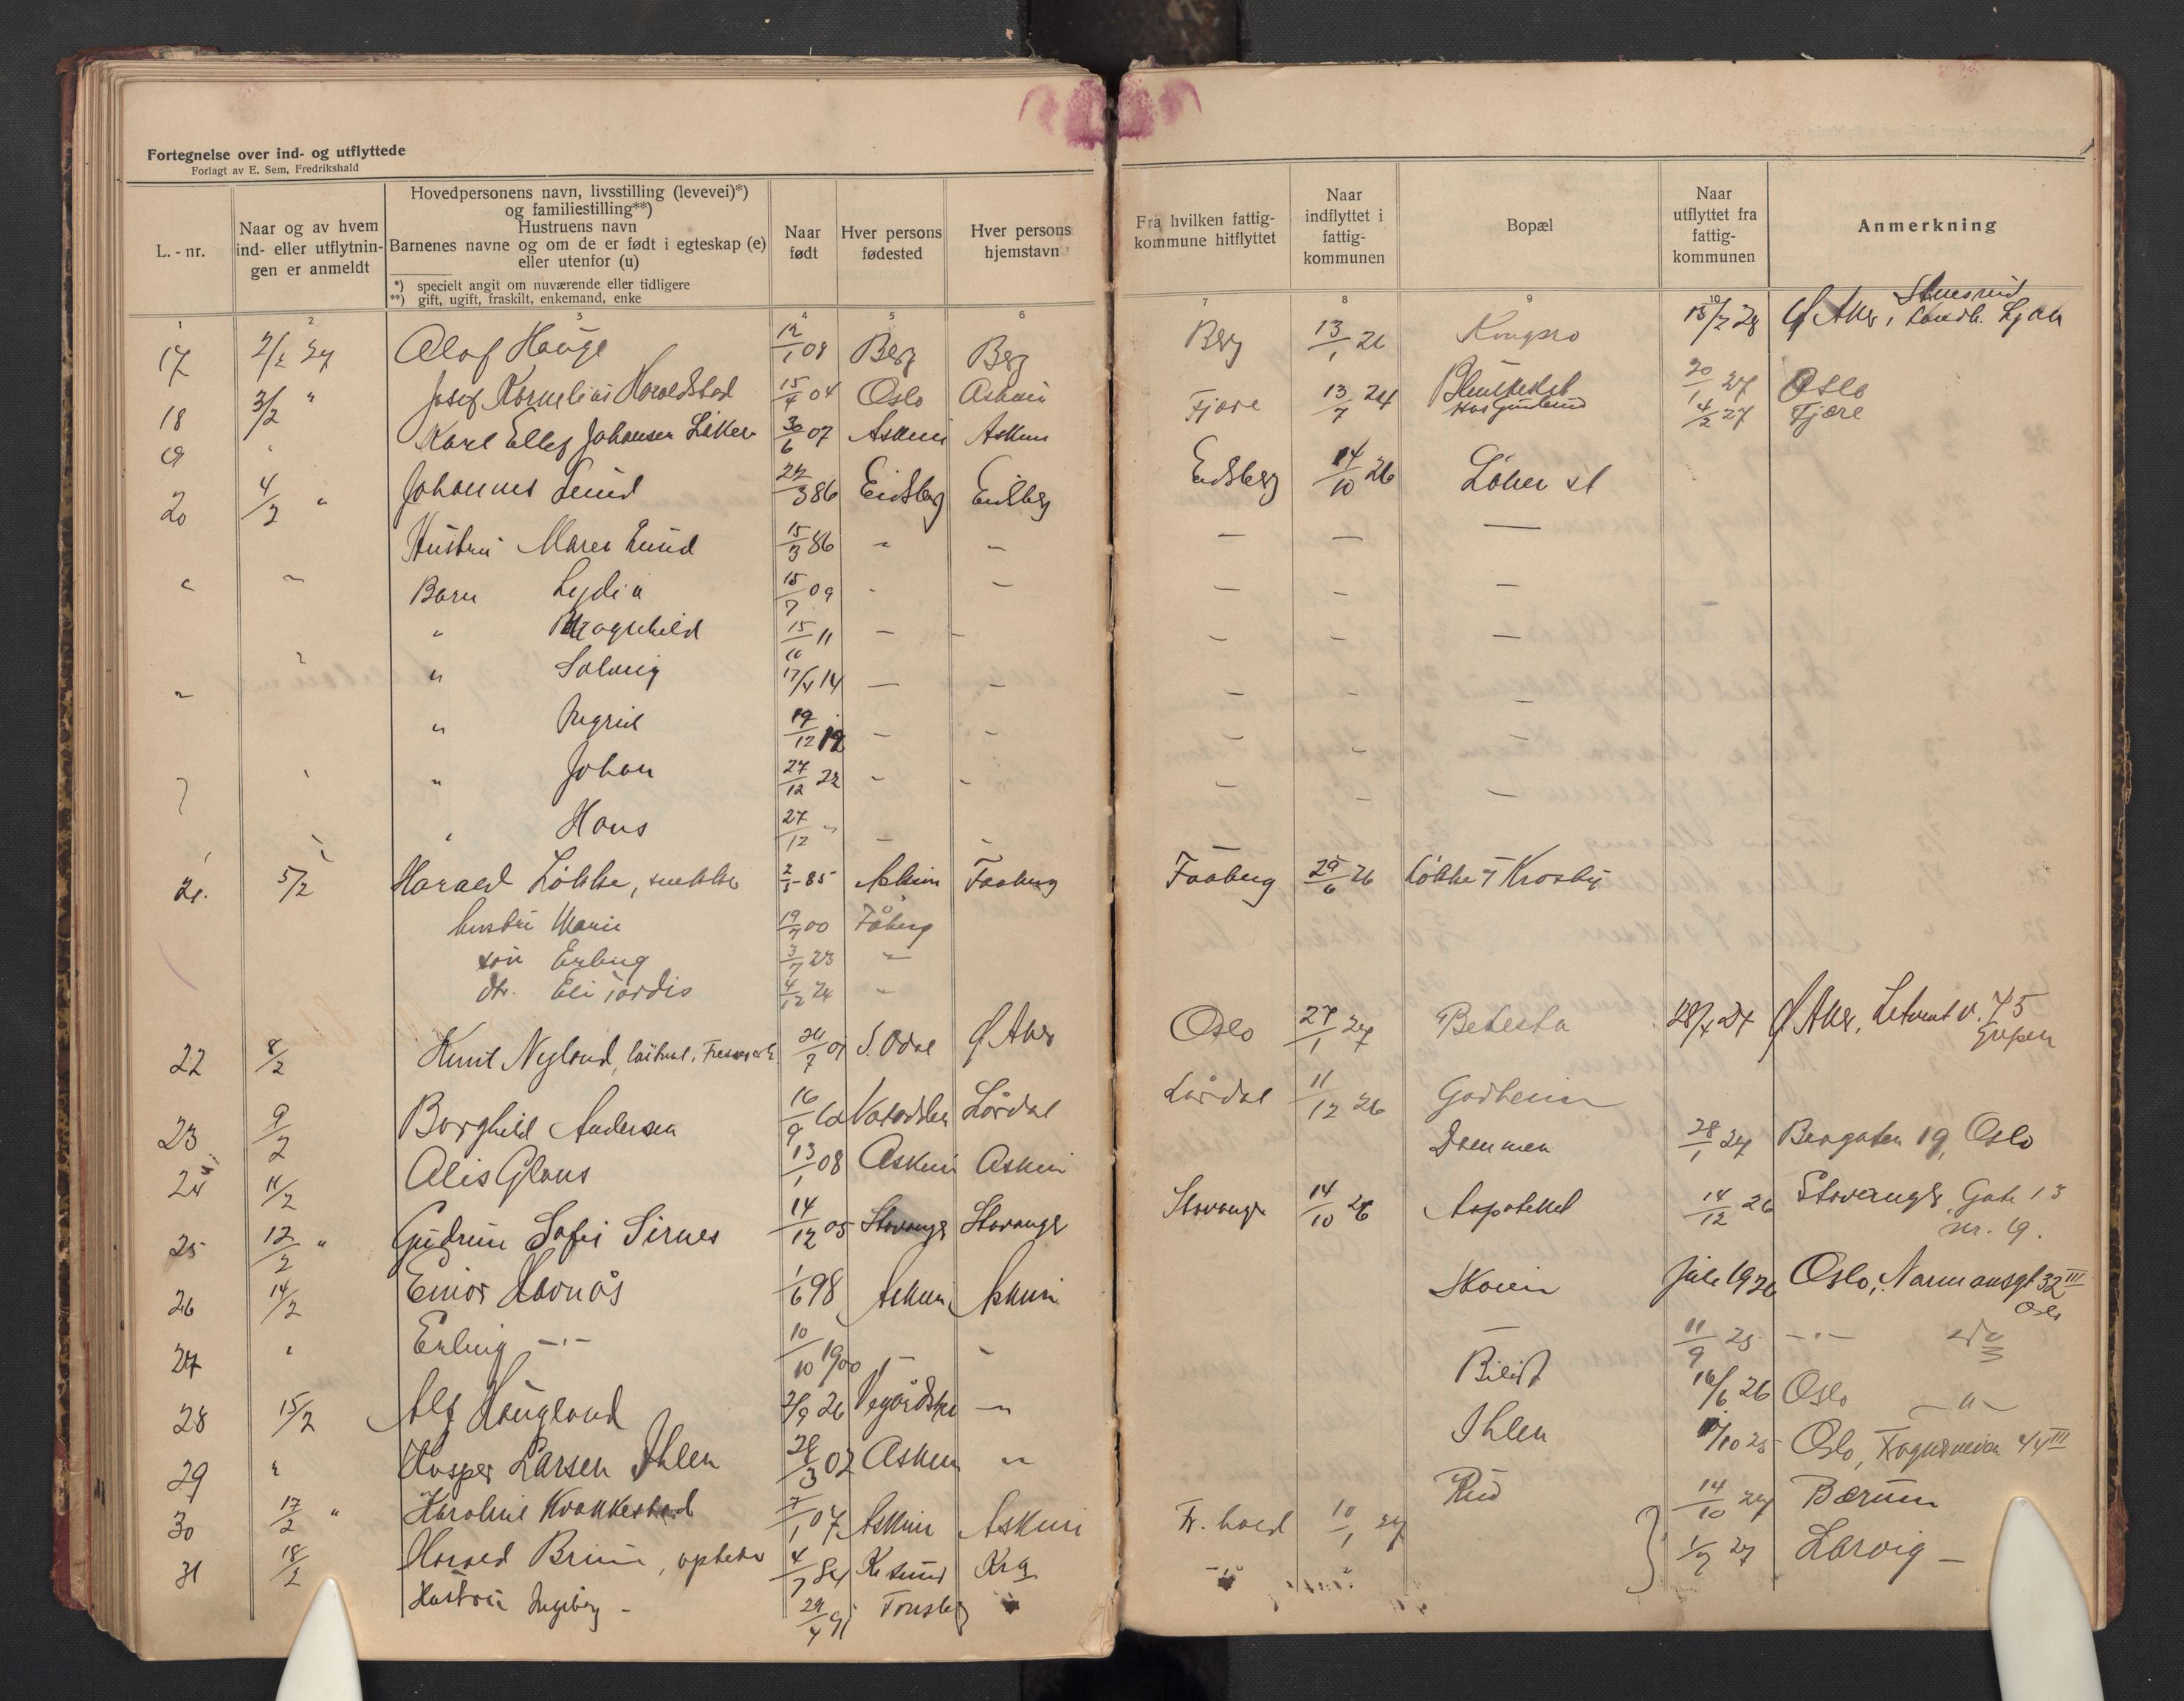 Fortegnelse over ind- og utflyttede
Forlagt av E. Sem, Fredrikshald
L.-nr.
Naar og av hvem ind- eller utflytnin-gen er anmeldt
Hovedpersonens navn, livsstilling (levevei)*)
og familiestilling**)
Hustruens navn
Barnenes navne og om de er født i egteskap (e)
eller utenfor (u)
*) specielt angit om nuværende eller tidligere
**) gift, ugift, fraskilt, enkemand, enke
Naar født
Hver persons fødested
Hver persons hjemstavn
Fra hvilken fattig-kommune hitflyttet
Naar indflyttet i fattig-kommunen
Bopæl
Naar utflyttet fra fattig-kommunen
Anmerkning
1 2 3 4 5 6 7 8 9 10
17 2/2 27 Olaf Hauge 12/1 08 Berg Berg Berg 13/1 26 Kongsro 15/2 28 Ø Aker, Ljan
18 3/2 " Josef Kornelius Haraldstad 15/4 04 Oslo Askim 20/1 27 Oslo
19 " Karl Ellef Johansen Løken 30/6 07 Askim Askim Fjære 13/7 24 4/2 27 Fjære
20 4/2 " Johannes Lund 22/3 86 Eidsberg Eidsberg Eidsberg 14/10 26 Løken st
Hustru Maren Lund 15/3 86 - - - - -
" - Barn Lydia 15/7 09 - - - - -
" Ragnhild 15/10 11 - - - - -
" Solveig 17/4 14 - - - - -
" Ingrid 19/12 19 - - - - -
" Johan 27/12 22 - - - - -
" Hans 27/12 " - -
21. 5/2 Harald Løkke, snekker 2/5 85 Askim Faaberg Faaberg 29/6 26 Løkke i Kroksby
hustru Marie 19/7 00 Fåberg
søn Erling 3/7 23 "
dtr. Eli Tordis 4/12 24 "
22 8/2 Knut Nyland, 24/7 01 S. Odal Ø Aker Oslo 27/1 27 Betesta 28/4 27 Ø Aker, 75
23 9/2 Borghild Andersen 16/9 Notodden Lårdal Lårdal 11/12 26 Godheim
24 11/2 Alis Glans 13/1 08 Askim Askim Dammen 28/1 27 Bergaten 19, Oslo
25 12/2 " Gudrun Sofie Sirnes 14/12 05 Stavanger Stavanger Stavanger 14/10 26 Aapoteket 14/12 26 Stavanger, Gate 13
nr. 9.
26 14/2 Einar Havnås 1/6 98 Askim Askim Skoien Juli 1926 Oslo, Normansgt 32 III
Oslo
27 " Erling -"- 10/10 1900 - - - 11/9 25 -"-
28 15/2 Alf Haugland 2/9 26 Vegårdshei - 16/6 26 Oslo -"-
29 " Kasper Larsen Ihlen 28/3 02 Askim " Ihlen /10 25 Oslo, 44 III
30 17/2 " Karoline Kvakkestad 7/1 07 Askim Askim Rud 14/10 27 Bærum
31 18/2 Harald Bruun, 4/7 84 Kr sund Kra Fr. hald 10/1 27 1/7 27 Larvig -
Hustru Ingeborg - 29/4 91 Tønsberg